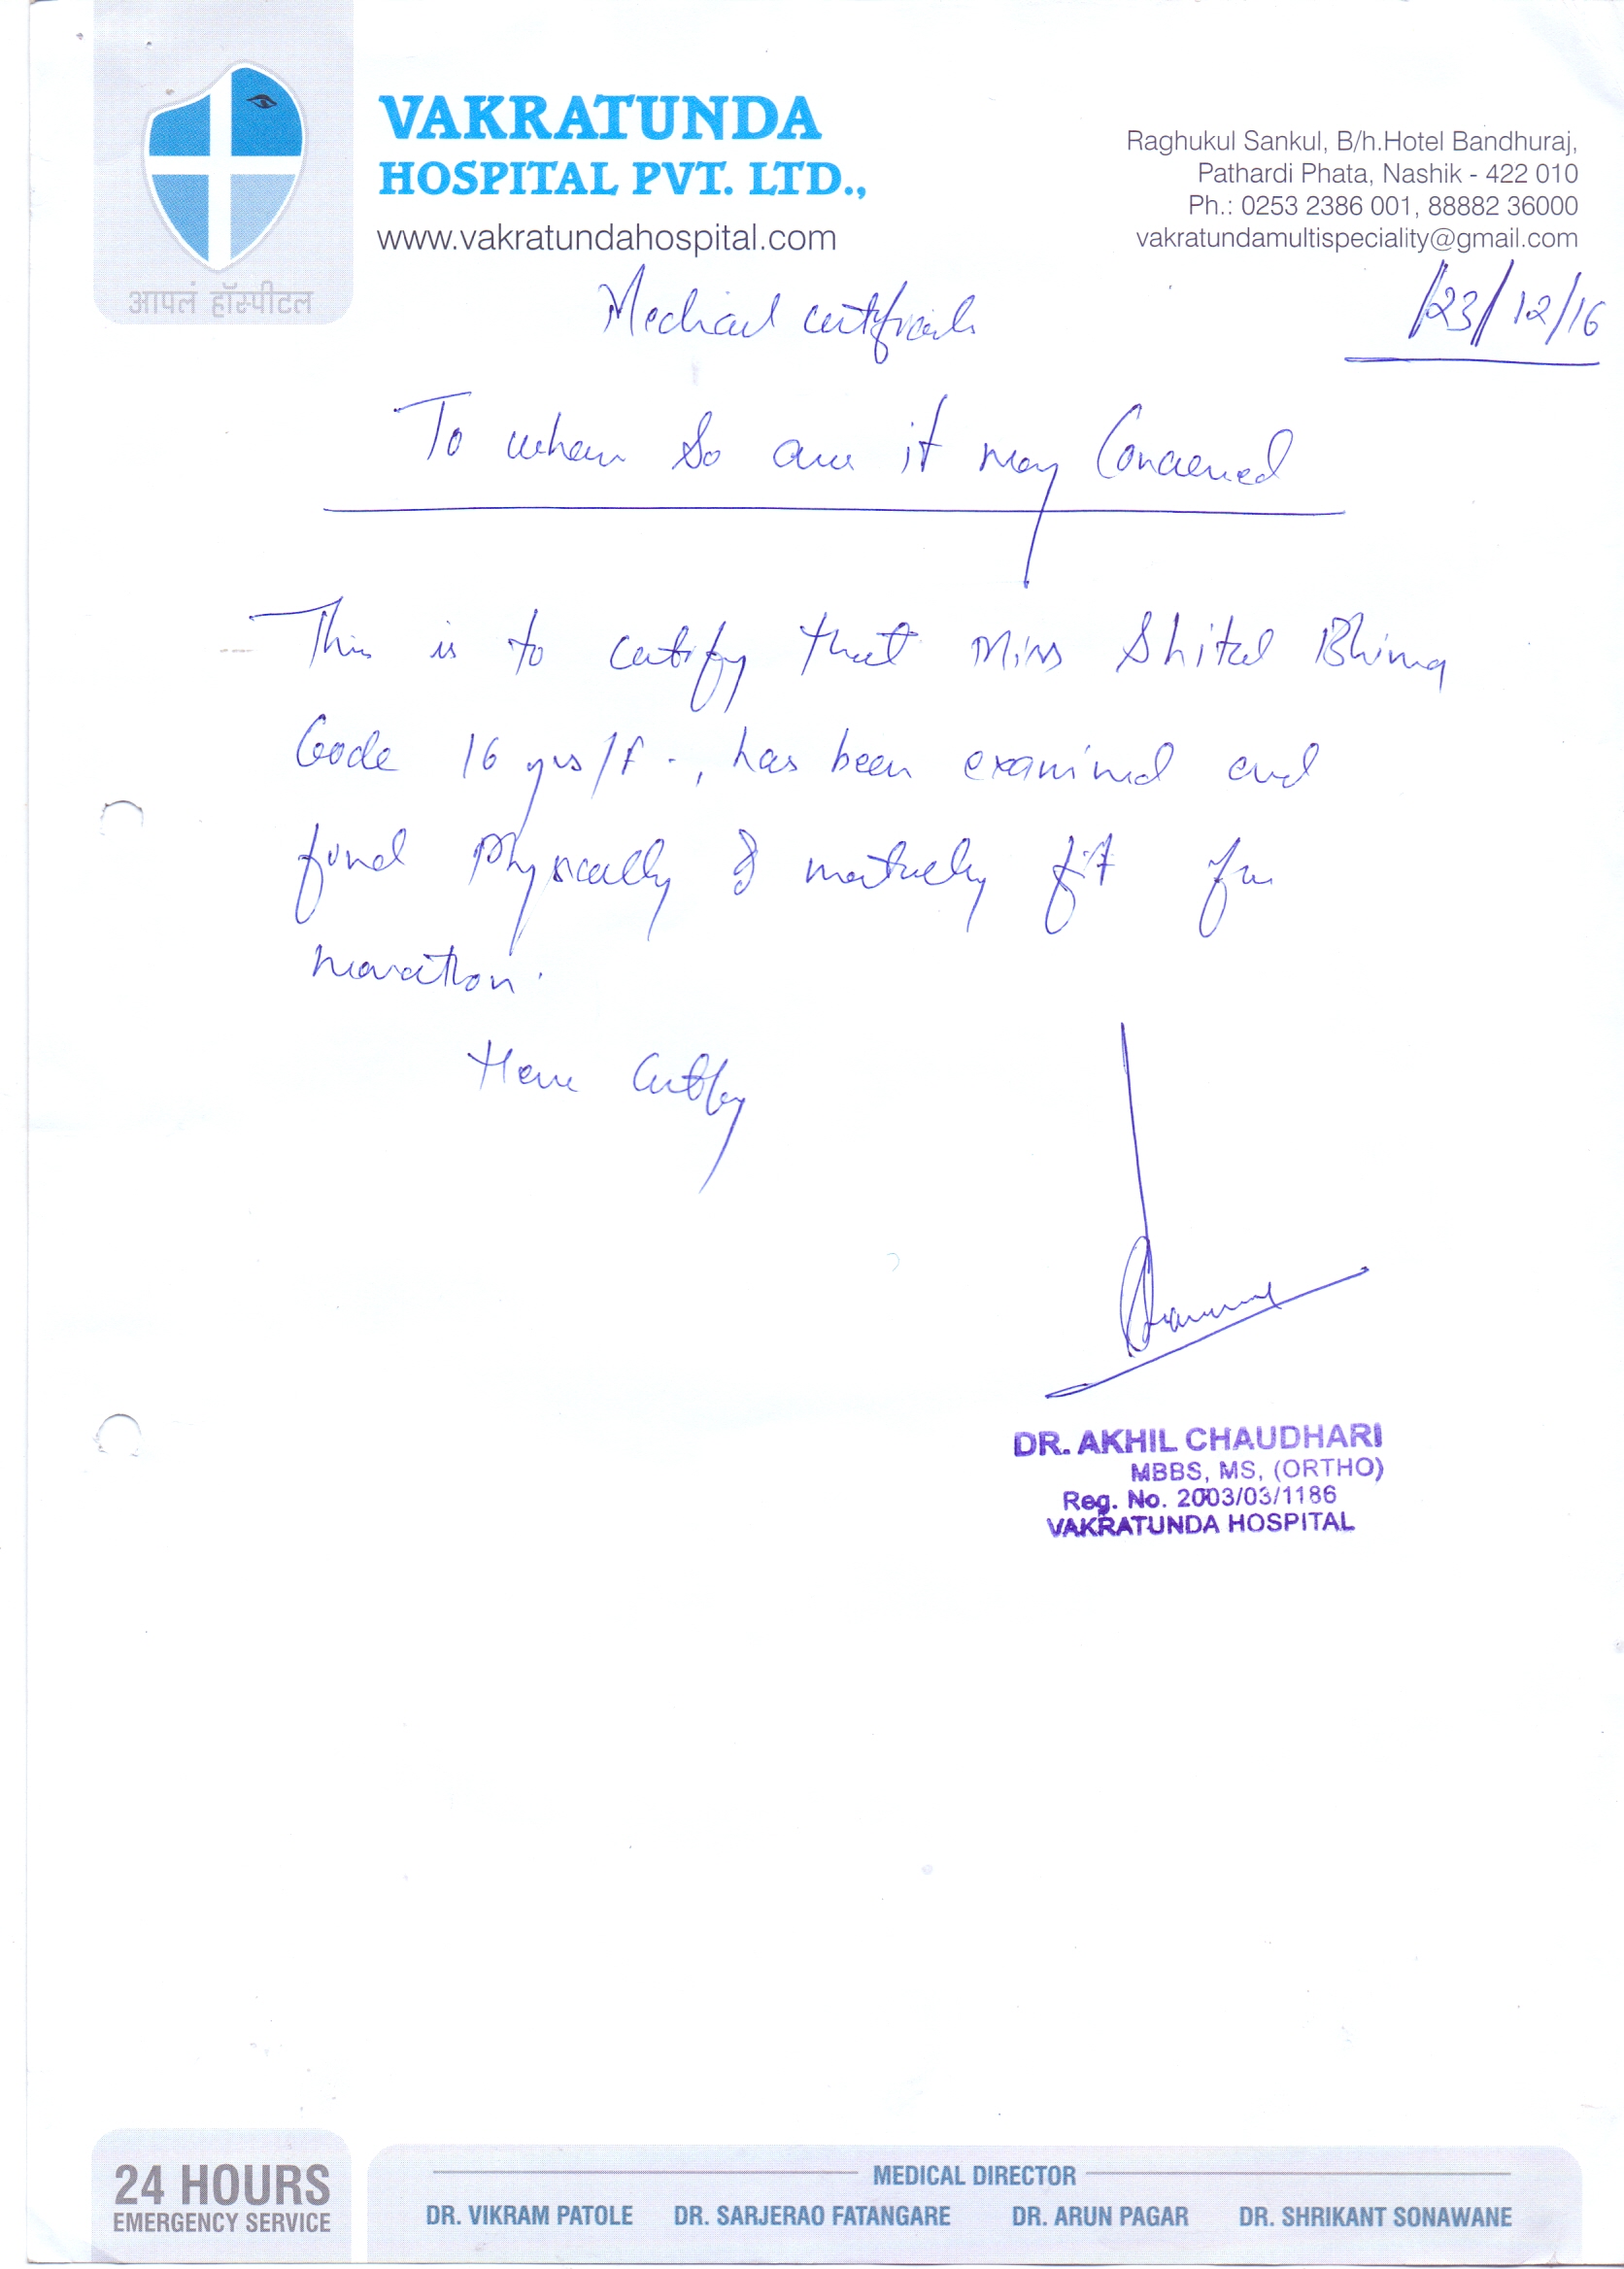 VAKRATUNDA
HOSPITAL PVT. LTD.,
www.vakratundahospital.com
आपलं हॉस्पीटल
Raghukul Sankul, B/h.Hotel Bandhuraj,
Pathardi Phata, Nashik - 422 010
Ph.: 0253 2386 001, 88882 36000
vakratundamultispeciality@gmail.com
23/12/16
Medical certificate
To whom So it may Concerned
This is to certify that Miss Shital Bhima
Gode 16 yrs/F , has been examined and
found physically & fit for
marathon.
certify
DR. AKHIL CHAUDHARI
MBBS, MS, (ORTHO)
Reg. No. 2003/03/1186
VAKRATUNDA HOSPITAL
24 HOURS
EMERGENCY SERVICE
MEDICAL DIRECTOR
DR. VIKRAM PATOLE DR. SARJERAO FATANGARE DR. ARUN PAGAR DR. SHRIKANT SONAWANE